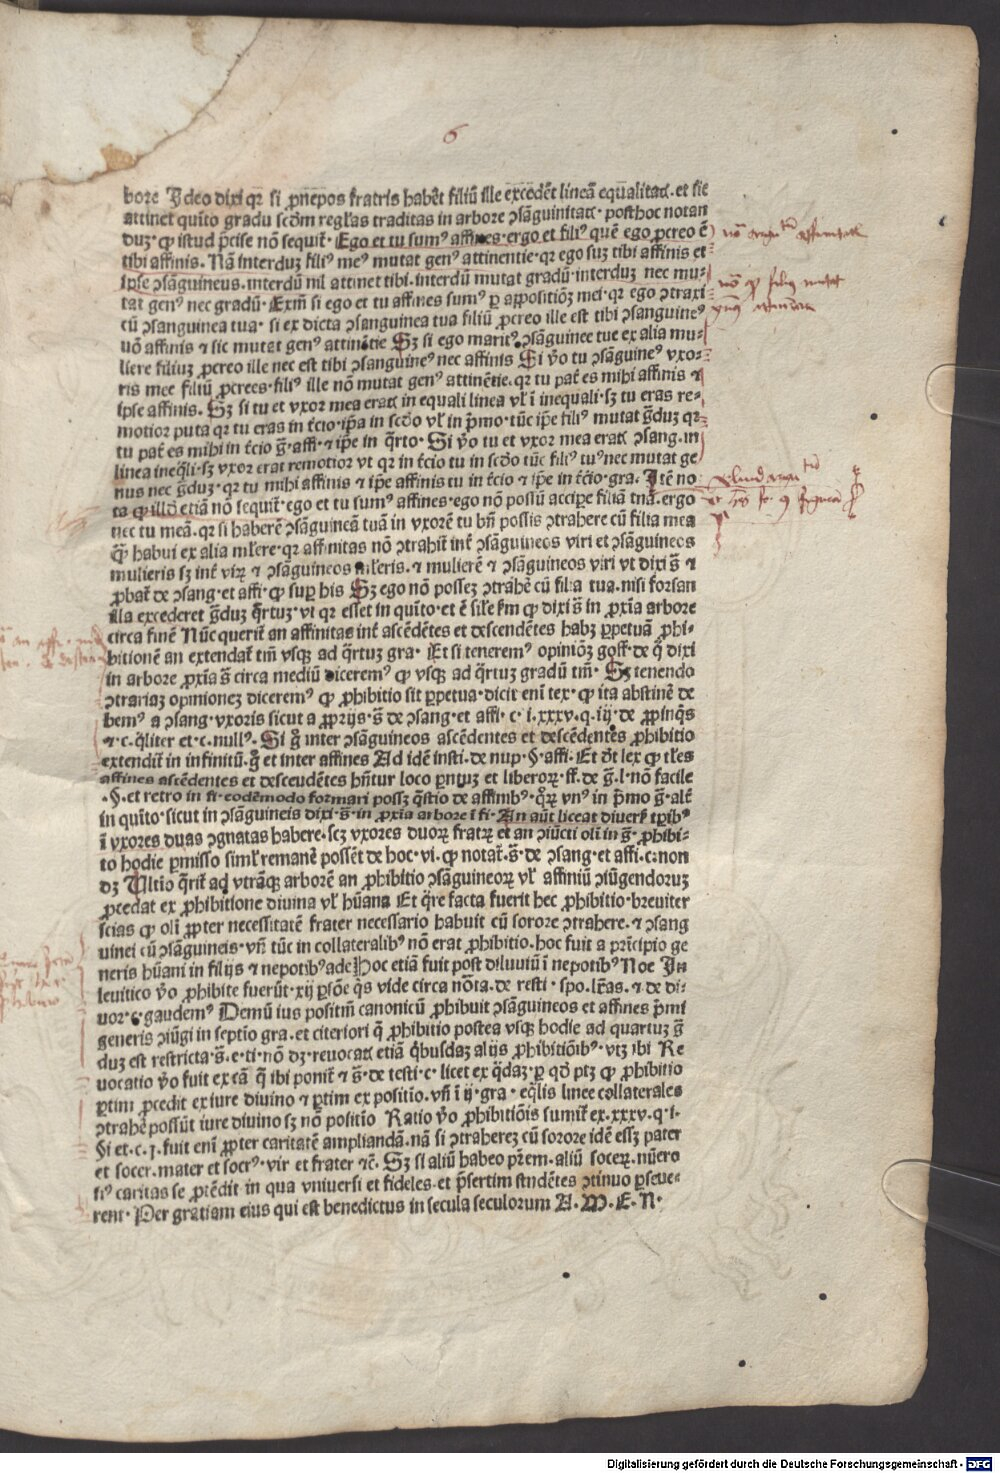 6
bore Ideo dixi qr si ꝓnepos fratris habēt filiū ille excedēt lineā equalitatꝭ. et sic
attinet quīto gradu scd̄m regl̓as traditas in arbore ↄsāguinitatꝭ. posthoc notan
duꝫ. ꝙ istud p̄cise nō sequit̉. Ego et tu sumꝰ affines. ergo et filiꝰ quē ego ꝓcreo ē
tibi affinis. Nā interduꝫ filiꝰ meꝰ mutat genꝰ attinentie. qr ego suꝫ tibi affinis et
ip̄e ↄsāguineus. interdū nil attinet tibi. interdū mutat gradū. interduꝫ nec mu-
tat genꝰ nec gradū. Exm̄ si ego et tu affines sumꝰ ꝑ appositiōꝫ mei. qr ego ↄtraxi
cū ↄsanguinea tua. si ex dicta ↄsanguinea tua filiū ꝓcreo ille est tibi ↄsanguineꝰ
uō affinis ⁊ sic mutat genꝰ attinētie Sꝫ si ego maritꝰ ↄsāguinee tue ex alia mu-
liere filiuꝫ ꝓcreo ille nec est tibi ↄsanguineꝰ nec affinis Si v̓o tu ↄsāguineꝰ vxo-
ris mee filiū ꝓcrees. filiꝰ ille nō mutat genꝰ attinētie. qr tu pat̓ es mihi affinis ⁊
ipse affinis. Sꝫ si tu et vxor mea eratꝭ in equali linea vl̓ ī inequali. sꝫ tu eras re-
motior puta qr tu eras in t̓cio. ip̄a in scd̄o vl̓ in p̄mo. tūc ip̄e filiꝰ mutat g̊duꝫ qr
tu pat̓ es mihi in t̓cio g̊. affi. ⁊ ip̄e in q̄rto. Si v̓o tu et vxor mea eratꝭ ↄsang. in
linea ineq̄li. sꝫ vxor erat remotior vt qr in t̓cio tu in scd̄o tūc filiꝰ tuꝰ nec mutat ge
nus nec g̊duꝫ. qr tu mihi affinis ⁊ ip̄e affinis tu in t̓cio ⁊ ip̄e in t̓cio. gra. Itē no
ta ꝙ illd̓ etiā nō sequit̉. ego et tu sumꝰ affines. ego nō possū accipe filiā tuā. ergo
nec tu meā. qr si haberē ↄsāguineā tuā in vxorē tu bn̄ possis ↄtrahere cū filia mea
q̄ꝫ habui ex alia ml̓iere. qr affinitas nō ↄtrahit̉ int̓ ↄsāguineos viri et ↄsāguineos
mulieris sꝫ int̓ viꝝ ⁊ ↄsāguineos ml̓ieris. ⁊ mulierē ⁊ ↄsāguineos viri vt dixi s̊ ⁊
ꝓbat̉ de ↄsang. et affi. ꝙ suꝑ his Sꝫ ego nō posseꝫ ↄtrahē cū filia tua. nisi forsan
illa excederet g̊duꝫ q̄rtuꝫ. vt qr esset in quīto. et ē sil̓e fm̄ ꝙ dixi s̊ in ꝓxīa arbore
circa finē Nūc querit̉ an affinitas int̓ ascēdētes et descendētes habꝫ ꝑpetuā ꝓhi-
bitionē an extendat̉ tm̄ vsqꝫ ad q̄rtuꝫ gra. Et si teneremꝰ opiniōꝫ goff. de q̄ dixi
in arbore ꝓxīa s̊ circa mediū diceremꝰ ꝙ vsqꝫ ad q̄rtuꝫ gradū tm̄. Sꝫ tenendo
ↄtrariaꝫ opinioneꝫ diceremꝰ ꝙ ꝓhibitio sit ꝑpetua. dicit eni tex. ꝙ ita abstinē de
bemꝰ a ↄsang. vxoris sicut a ꝓprijs. s̊ de ↄsang. et affi. c. i. xxxv. q. iij. de ꝓpinq̄s
⁊. c. q̄liter et. c. nullꝰ. Si g̊ inter ↄsāguineos ascēdentes et descēdentes ꝓhibitio
extendit̉ in infinitū. g̊ et inter affines Ad idē insti. de nup. §. affi. Et dt̓ lex ꝙ tl̓es
affines ascēdentes et descendētes hn̄tur loco ꝑntuꝫ et liberoꝝ. ff. de g̊. l. nō facile
.§. et retro in fi. eodēmodo formari possꝫ q̄stio de affinibꝰ. q̄ꝝ vnꝰ in p̄mo g̊. alt̓
in quīto. sicut in ↄsāguineis dixi. s̊. in ꝓxīa arbore ī fi. An aūt liceat diuers̓ tꝑibꝰ
ī vxores duas ↄgnatas habere. scꝫ vxores duoꝝ fratꝝ et an ↄiūcti oli in g̊. ꝓhibi-
to hodie ꝑmisso siml̓ remanē possēt de hoc. vi. ꝙ notat̉. s̊. de ↄsang. et affi. c. non
dꝫ Ultio q̄rit̉ ad vtrāqꝫ arborē an ꝓhibitio ↄsāguineoꝝ vl̓ affiniū ↄiūgendoruꝫ
ꝓcedat ex ꝓhibitione diuina vl̓ hūana Et q̄re facta fuerit hec ꝓhibitio. breuiter
scias ꝙ oli ꝓpter necessitatē frater necessario habuit cū sorore ↄtrahere. ⁊ ↄsang
uinei cū ↄsāguineis. vn̄ tūc in collateralibꝰ nō erat ꝓhibitio. hoc fuit a prīcipio ge
neris hūani in filijs ⁊ nepotibꝰ ade Hoc etiā fuit post diluuiū ī nepotibꝰ Noe In
leuitico v̓o ꝓhibite fuerūt. xij ꝑsōe q̄s vide circa nōta. de resti. spo. lr̄as. ⁊ de di-
uor. c. gaudemꝰ Demū ius positiuū canonicū ꝓhibuit ↄsāguineos et affines p̄mi
generis ↄiūgi in septio gra. et citeriori q̄ ꝓhibitio postea vsqꝫ hodie ad quartuꝫ g̊
duꝫ est restricta. s̊. e. ti. nō dꝫ. reuocatꝭ etiā q̄busdaꝫ alijs ꝓhibitiōibꝰ. vtꝫ ibi Re
uocatio v̓o fuit ex cā q̄ ibi ponit̉ ⁊ s̊. de testi. c. licet ex q̄daꝫ. ꝑ qd̓ ptꝫ ꝙ ꝓhibitio
ꝑtim ꝓcedit ex iure diuino ⁊ ꝑtim ex positiuo. vn̄ ī ij. gra. eq̄lis linee collaterales
ↄtrahē possūt iure diuino sꝫ nō positiuo Ratio v̓o ꝓhibitiōis sumit̉ ex. xxxv. q. i.
§i et. c. j. fuit eni ꝓpter caritatē ampliandā. nā si ↄtrahereꝫ cū sorore idē essꝫ pater
et socer. mater et socrꝰ. vir et frater ⁊c̄. Sꝫ si aliū habeo pr̄em. aliū soceꝝ. nūero
fiꝰ caritas se ꝓtēdit in qua vniuersi et fideles. et p̄sertim studētes ↄtinuo ꝑseue-
rent. Per gratiam eius qui est benedictus in secula seculorum A. M. E. N.
Digitalisierung gefördert durch die Deutsche Forschungsgemeinschaft - DFG